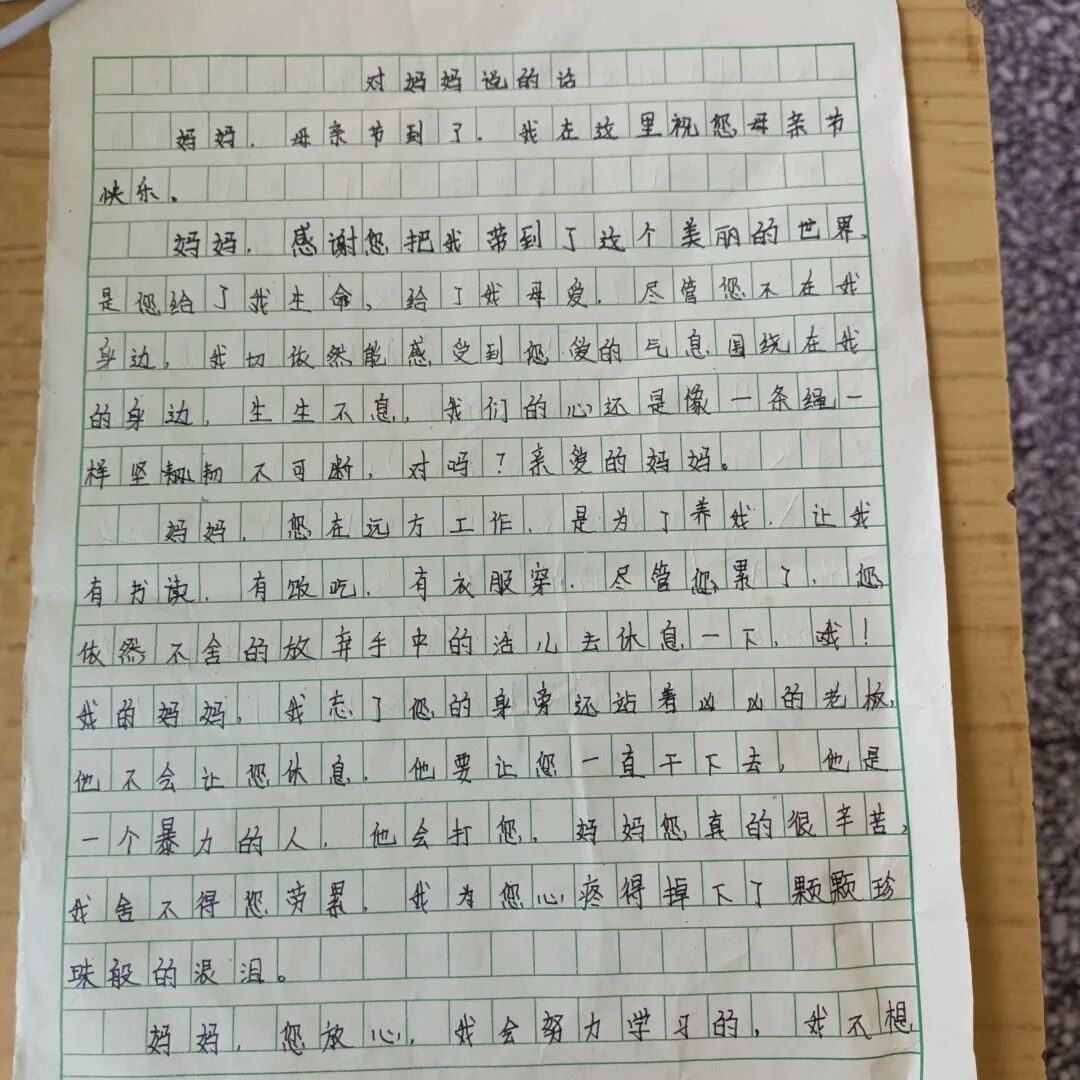 对妈妈说的话
妈妈，母亲节到了，我在这里祝您母亲节
快乐。
妈妈，感谢您把我带到了这个美丽的世界，
是您给了我生命，给了我母爱，尽管您不在我
身边，我切依然能感受到您爱的气息围绕在我
的身边，生生不息，我们的心还是像一条绳一
样坚韧不可断，对吗？亲爱的妈妈。
妈妈，您在远方工作，是为了养我，让我
有书读，有饭吃，有衣服穿，尽管您累了，您
依然不舍的放弃手中的活儿去休息一下，哦！
我的妈妈，我忘了您的身旁还站着凶凶的老板，
他不会让您休息，他要让您一直干下去，他是
一个暴力的人，他会打您，妈妈您真的很辛苦，
我舍不得您劳累，我为您心疼得掉下了颗颗珍
珠般的泪。
妈妈，您放心，我会努力学习的，我不想